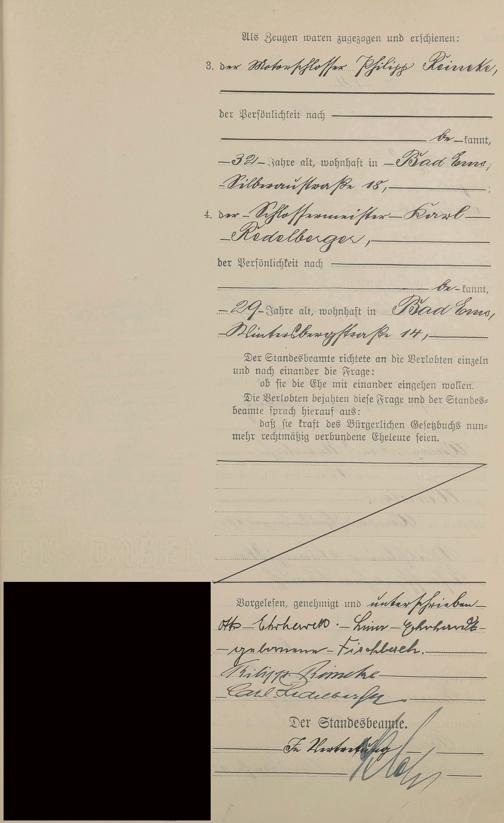 Als Zeugen waren zugezogen und erschienen:
3. der Motorschlosser Philipp Reineke,
der Persönlichkeit nach
be-kannt,
-32- Jahre alt, wohnhaft in Bad Ems,
Silberaustraße 18,
4. der Schlossermeister Karl
Redelberger,
der Persönlichkeit nach
be-kannt,
-29- Jahre alt, wohnhaft in Bad Ems,
Wintersbergstraße 14,
Der Standesbeamte richtete an die Verlobten einzeln
und nach einander die Frage:
ob sie die Ehe mit einander eingehen wollen.
Die Verlobten bejahten diese Frage und der Standes-
beamte sprach hierauf aus:
daß sie kraft des Bürgerlichen Gesetzbuchs nun-
mehr rechtmäßig verbundene Eheleute seien.
Vorgelesen, genehmigt und unterschrieben
Otto Ehrhardt. Lina Ehrhardt
geborene Fischbach.
Philipp Reineke
Carl Redelberger
Der Standesbeamte.
In Vertretung